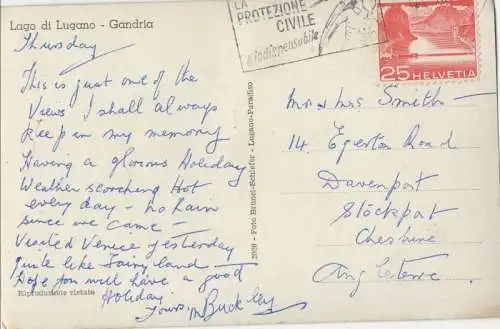 Lago di Lugano - Gandria
Thursday
This is just one of the
Views I shall always
keep in my memory
Having a glorious Holiday
Weather scorching Hot
every day - no rain
since we came -
Visited Venice yesterday
quite like Fairy land -
Hope you will have a good
Holiday
Yours, M Buckley
Riproduzione vietata
2039 - Foto Brunel-Schäfer - Lugano-Paradiso
LA
PROTEZIONE
CIVILE
è indispensabile
25 HELVETIA
Mr & Mrs Smith -
14, Egerton Road
Davenport
Stockport
Cheshire
Angleterre